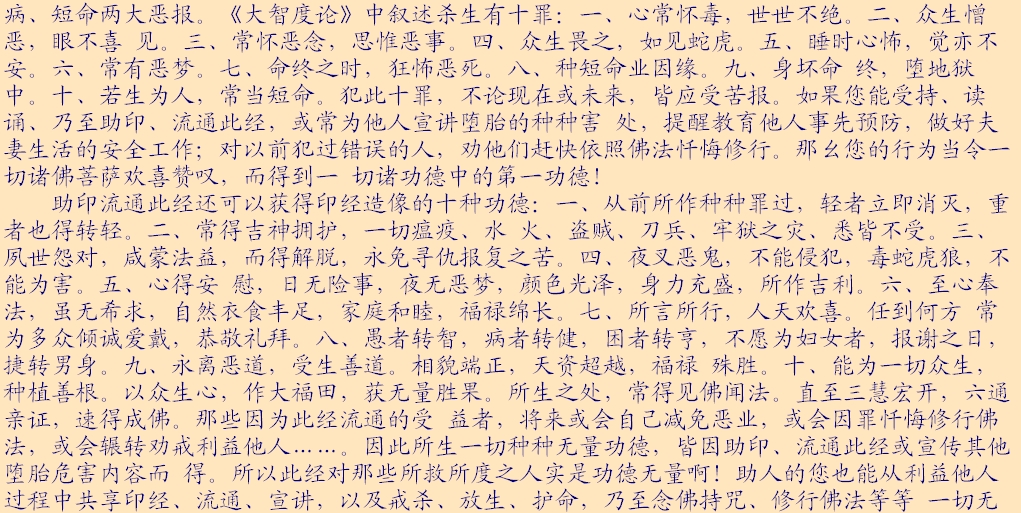 病、短命两大恶报。《大智度论》中叙述杀生有十罪：一、心常怀毒，世世不绝。二、众生憎
恶，眼不喜 见。三、常怀恶念，思惟恶事。四、众生畏之，如见蛇虎。五、睡时心怖，觉亦不
安。六、常有恶梦。七、命终之时，狂怖恶死。八、种短命业因缘。九、身坏命 终，堕地狱
中。十、若生为人，常当短命。犯此十罪，不论现在或未来，皆应受苦报。如果您能受持、读
诵、乃至助印、流通此经，或常为他人宣讲堕胎的种种害 处，提醒教育他人事先预防，做好夫
妻生活的安全工作；对以前犯过错误的人，劝他们赶快依照佛法忏悔修行。那幺您的行为当令一
切诸佛菩萨欢喜赞叹，而得到一 切诸功德中的第一功德！
助印流通此经还可以获得印经造像的十种功德：一、从前所作种种罪过，轻者立即消灭，重
者也得转轻。二、常得吉神拥护，一切瘟疫、水 火、盗贼、刀兵、牢狱之灾、悉皆不受。三、
夙世怨对，咸蒙法益，而得解脱，永免寻仇报复之苦。四、夜叉恶鬼，不能侵犯，毒蛇虎狼，不
能为害。五、心得安 慰，日无险事，夜无恶梦，颜色光泽，身力充盛，所作吉利。六、至心奉
法，虽无希求，自然衣食丰足，家庭和睦，福禄绵长。七、所言所行，人天欢喜。任到何方 常
为多众倾诚爱戴，恭敬礼拜。八、愚者转智，病者转健，困者转亨，不愿为妇女者，报谢之日，
捷转男身。九、永离恶道，受生善道。相貌端正，天资超越，福禄 殊胜。十、能为一切众生，
种植善根。以众生心，作大福田，获无量胜果。所生之处，常得见佛闻法。直至三慧宏开，六通
亲证，速得成佛。那些因为此经流通的受 益者，将来或会自己减免恶业，或会因罪忏悔修行佛
法，或会辗转劝戒利益他人……。因此所生一切种种无量功德，皆因助印、流通此经或宣传其他
堕胎危害内容而 得。所以此经对那些所救所度之人实是功德无量啊！助人的您也能从利益他人
过程中共享印经、流通、宣讲，以及戒杀、放生、护命，乃至念佛持咒、修行佛法等等 一切无